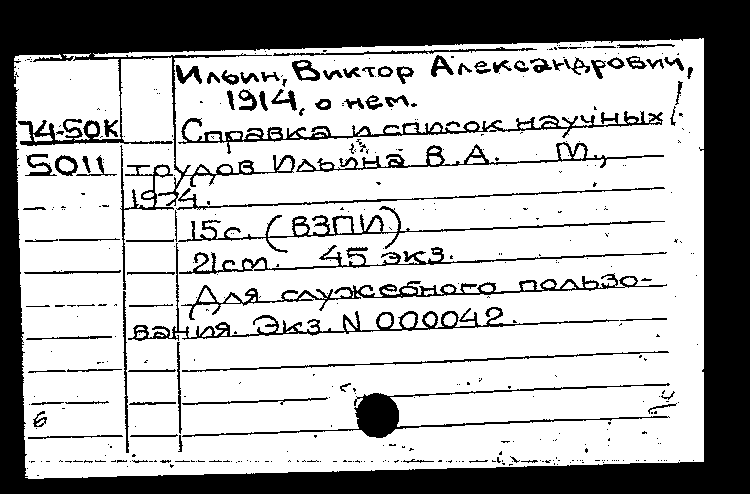 Ильин, Виктор Александрович,
1914, о нем.
74-50К Справка и список научных
5011 трудов Ильина В.А. М.,
1974.
15с. (ВЗПИ).
21см. 45 экз.
Для служебного пользо-
вания. Экз. N 000042.
6